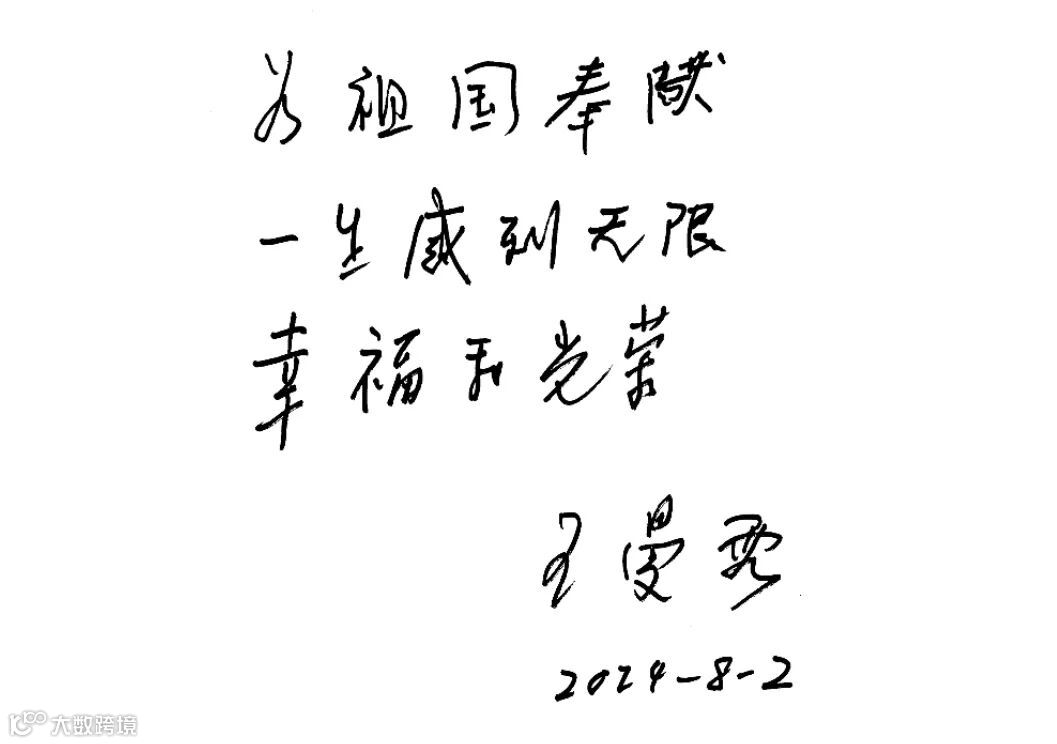 为祖国奉献
一生感到无限
幸福和光荣
王曼
2024-8-2
大数跨境